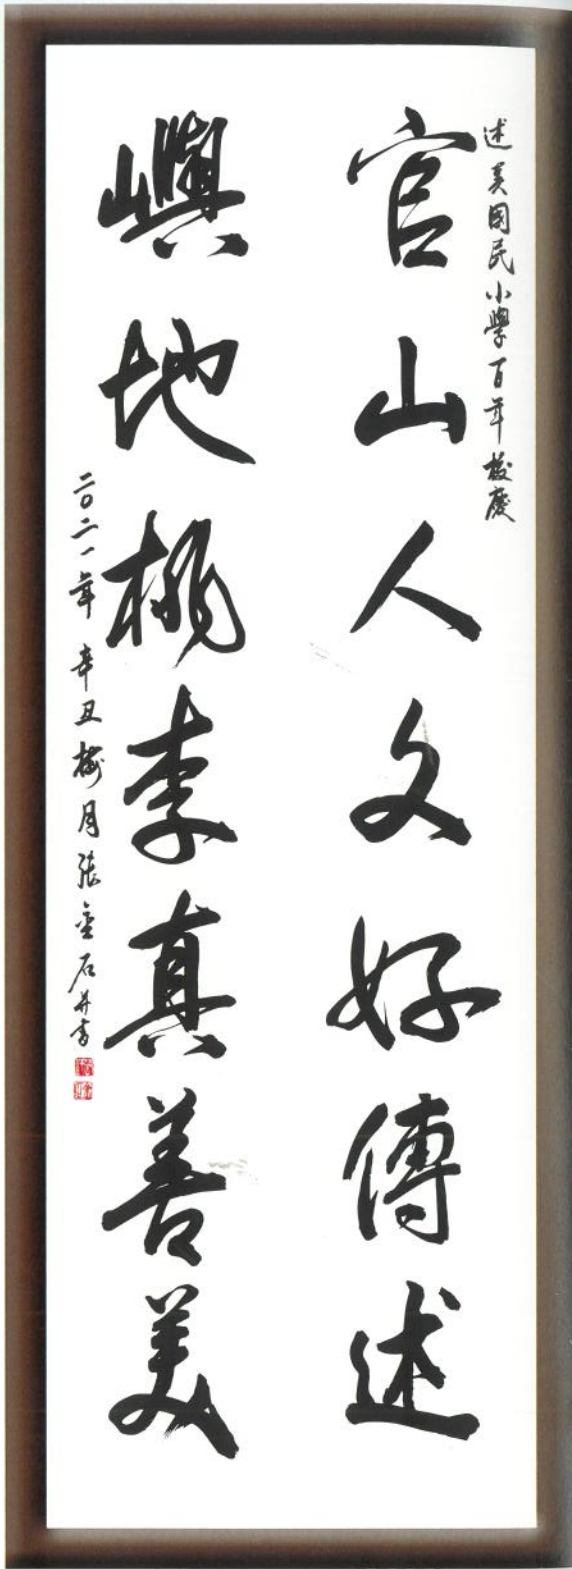 述美國民小學百年校慶
官山人文好傳述
嶼地桃李真善美
二〇二一年辛丑梅月張金石并書